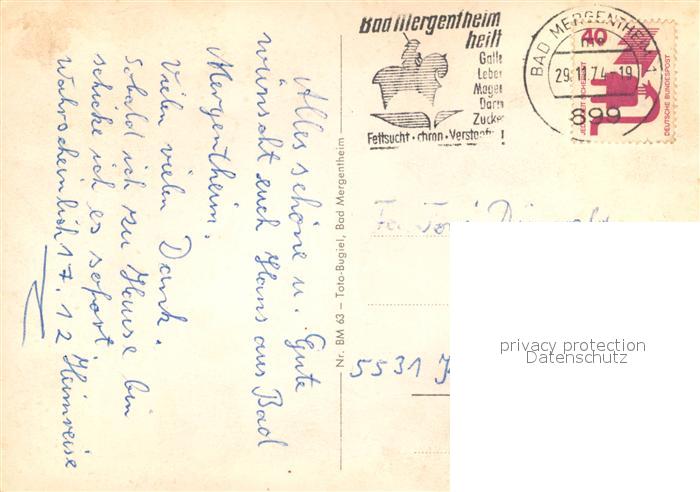 Alles schöne u. Gute
wünscht euch Hans aus Bad
Mergentheim.
Vielen vielen Dank.
Sobald ich zu Hause bin
schicke ich es sofort.
Wahrscheinlich 17. 12 Heimreise
Nr. BM 63 — Toto-Bugiel, Bad Mergentheim
Bad Mergentheim
heilt
Galle
Leber
Magen
Darm
Zucker
Fettsucht · chron · Verstopfg !
BAD MERGENTHEIM 1
29.11.74-19
899
40
JEDERZEIT SICHERHEIT
DEUTSCHE BUNDESPOST
5531
privacy protection
Datenschutz